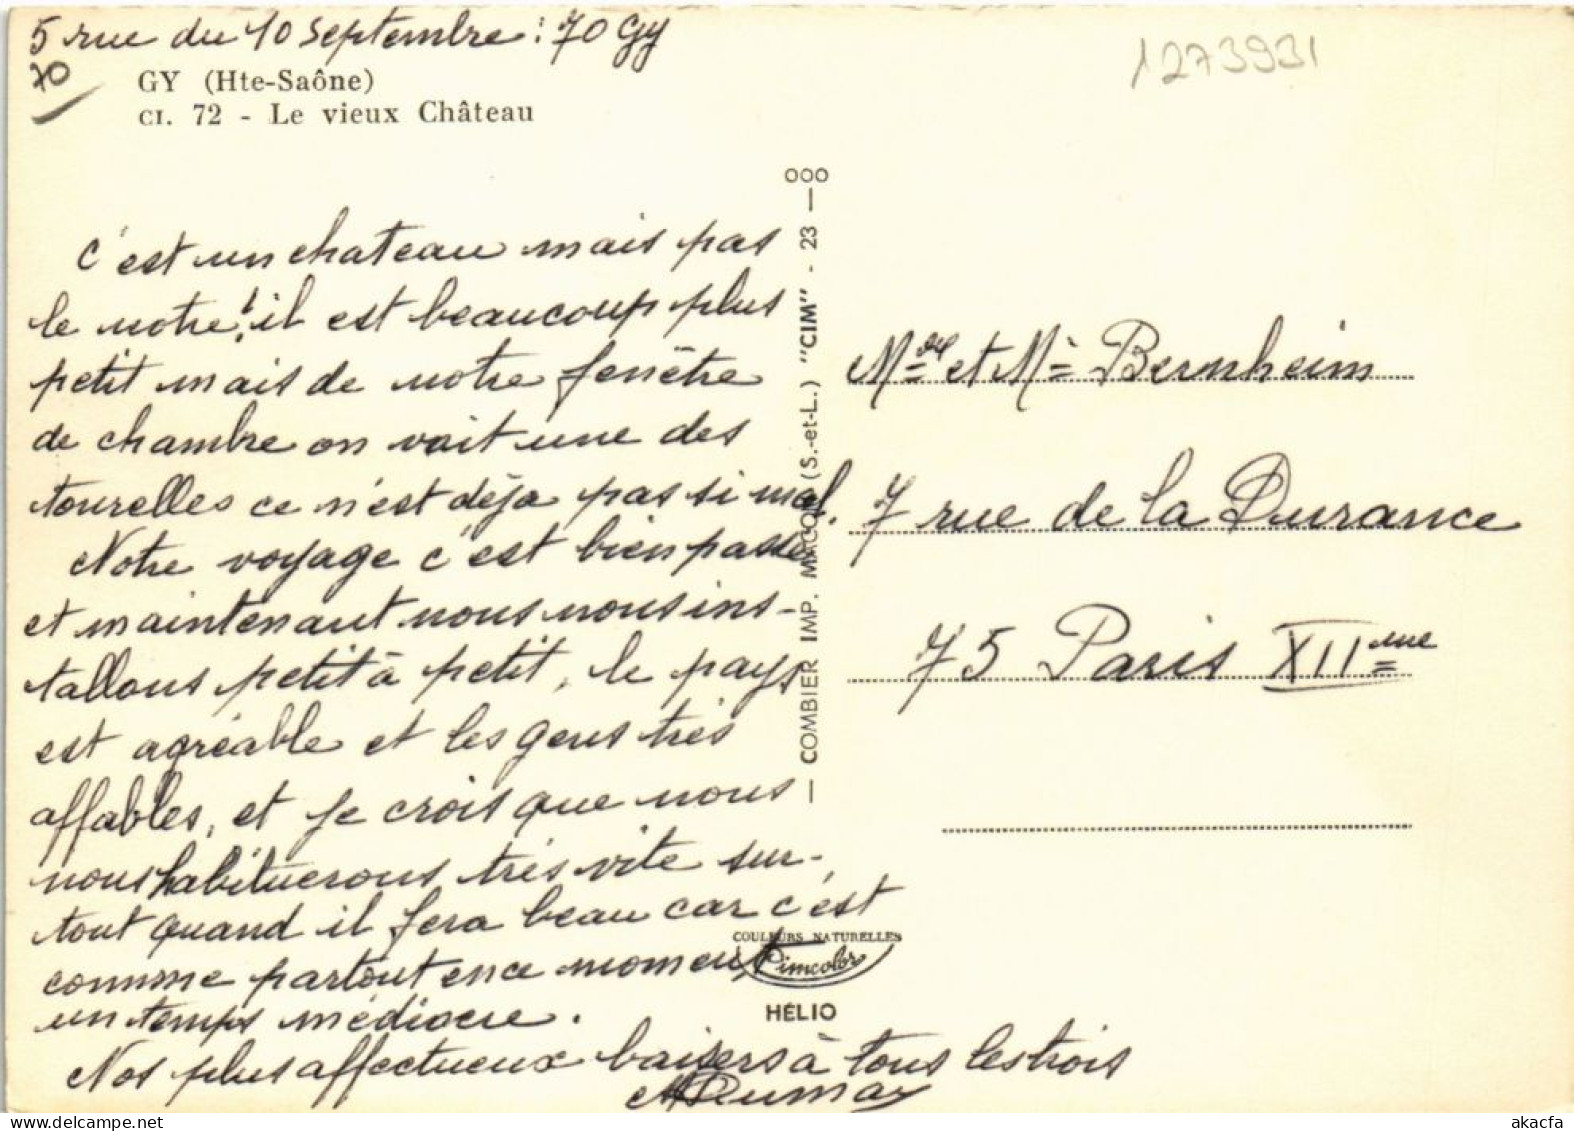 5 rue du 10 septembre : 70 Gy
70
GY (Hte-Saône)
CI. 72 - Le vieux Château
1273931
c'est un chateau mais pas
le notre! il est beaucoup plus
petit mais de notre fenêtre
de chambre on voit une des
tourelles ce n'est déja pas si mal.
Notre voyage c'est bien passé
et maintenant nous nous ins-
tallons petit à petit, le pays
est agréable et les gens très
affables, et je crois que nous
nous habituerons très vite sur-
tout quand il fera beau car c'est
comme partout en ce moment
un temps médiocre.
Nos plus affectueux baisers à tous les trois
M Dumay
COMBIER IMP. MACON (S.-et-L.) "CIM" - 23 — OOO
COULEURS NATURELLES
Cimcolor
HÉLIO
Mme et Mr Bernheim
7 rue de la Durance
75 Paris XIIème
akacfa